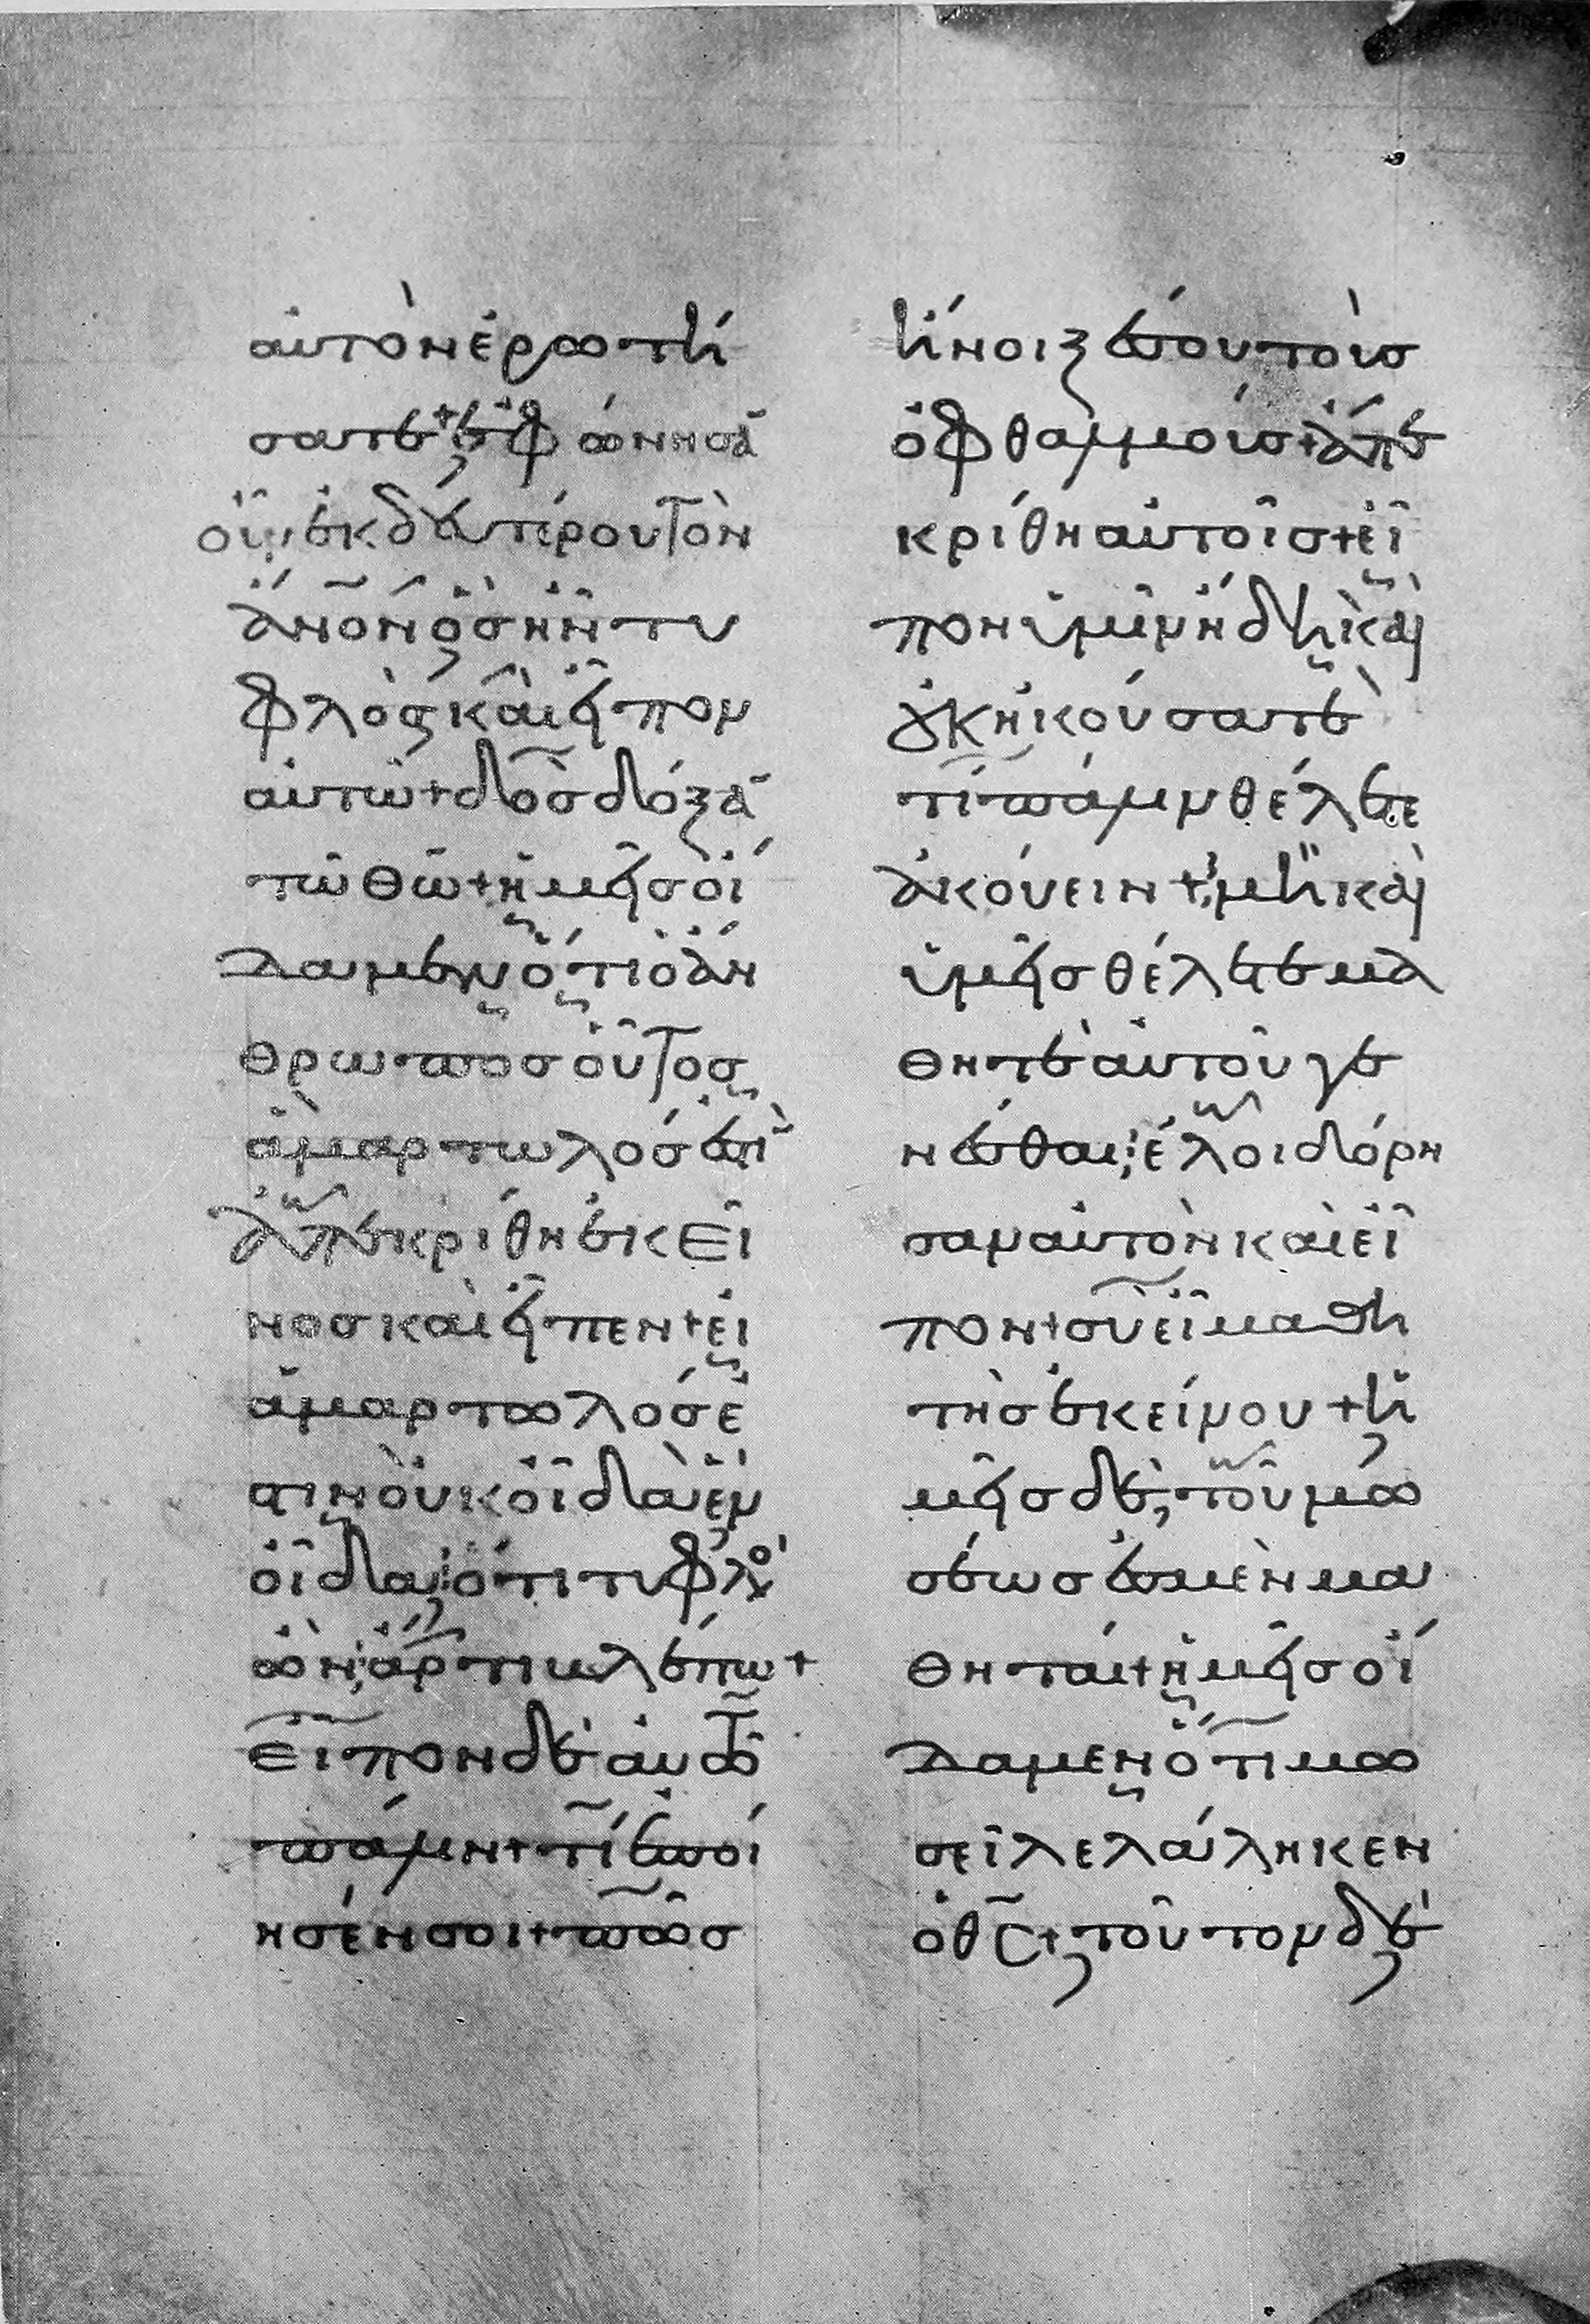 αὐτὸν ἐρωτή
σατε + ἐφώνησᾱ
οὖν ἐκ δευτέρου τὸν
ἄνον ὃς ἦν τυ
φλὸς καὶ εἶπον
αὐτῶ + δὸς δόξᾱ
τῶ θῶ + ἡμεῖς οἴ
δαμεν ὅτι ὁ ἄν
θρωπος οὗτος
ἁμαρτωλός ἐστι
ἀπεκρίθη ἐκεῖ
νος καὶ εἶπεν + εἰ
ἁμαρτωλός ἐ
στιν οὐκ οἶδα ἓν
οἶδα ὅτι τυφλὸ
ὢν ἄρτι βλέπω +
εἶπον δὲ αὐτῶ
πάλιν + τί ἐποί
ησέν σοι + πῶς
ἤνοιξέν σου τοὺς
ὀφθαλμούς + ἀπε
κρίθη αὐτοῖς + εἶ
πον ὑμῖν ἤδη καὶ
οὐκ ἠκούσατε
τί πάλιν θέλετε
ἀκούειν + μὴ καὶ
ὑμεῖς θέλετε μα
θηταὶ αὐτοῦ γε
νέσθαι; ἐλοιδόρη
σαν αὐτὸν καὶ εἶ
πον + σὺ εἶ μαθη
τὴς ἐκείνου + ἡ
μεῖς δὲ, τοῦ μω
σέως ἐσμὲν μα
θηταί + ἡμεῖς οἴ
δαμεν ὅτι μω
σεῖ λελάληκεν
ὁ θς +, τοῦτον δὲ